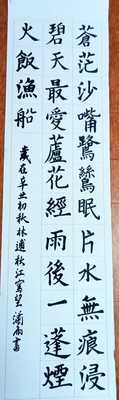 蒼茫沙嘴鷺鷥眠片水無痕浸
碧天最愛蘆花經雨後一蓬煙
火飯漁船
歲在辛丑初秋林逋秋江寫望 書